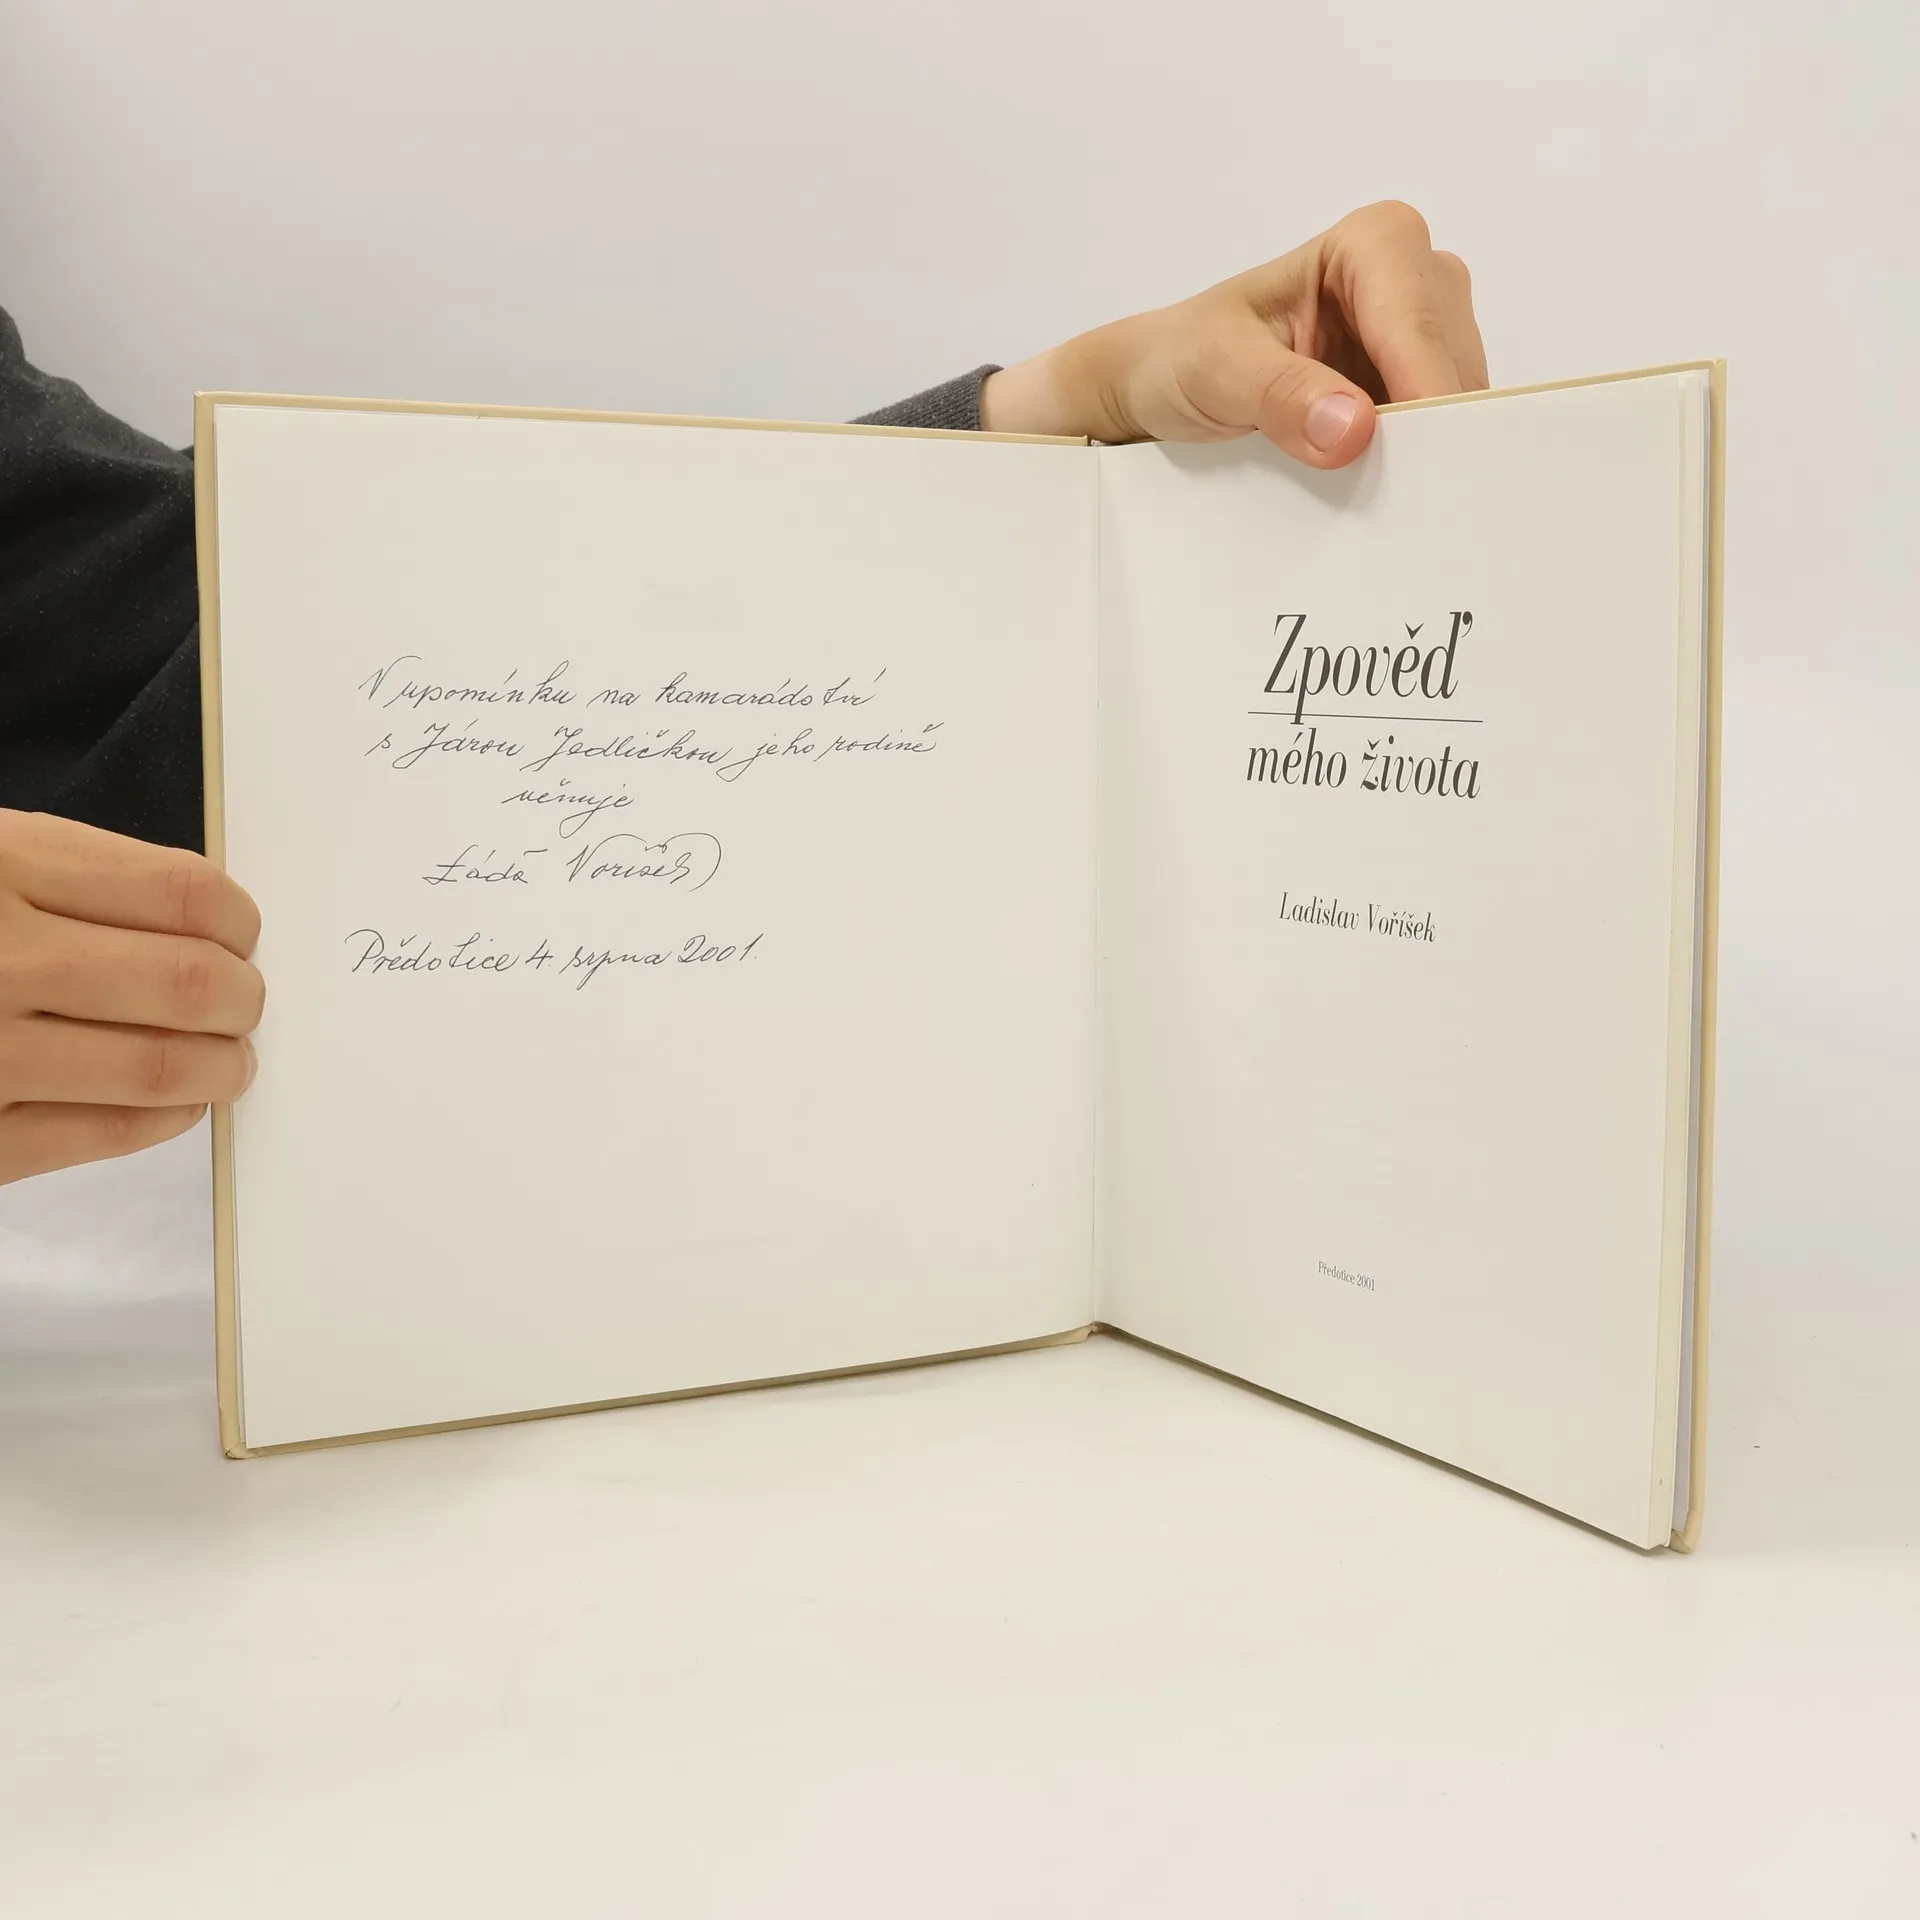 V upomínku na kamarádství
s Járou Jedličkou jeho rodině
věnuje
Láďa Voříšek
Předotice 4. srpna 2001.
Zpověď
mého života
Ladislav Voříšek
Předotice 2001